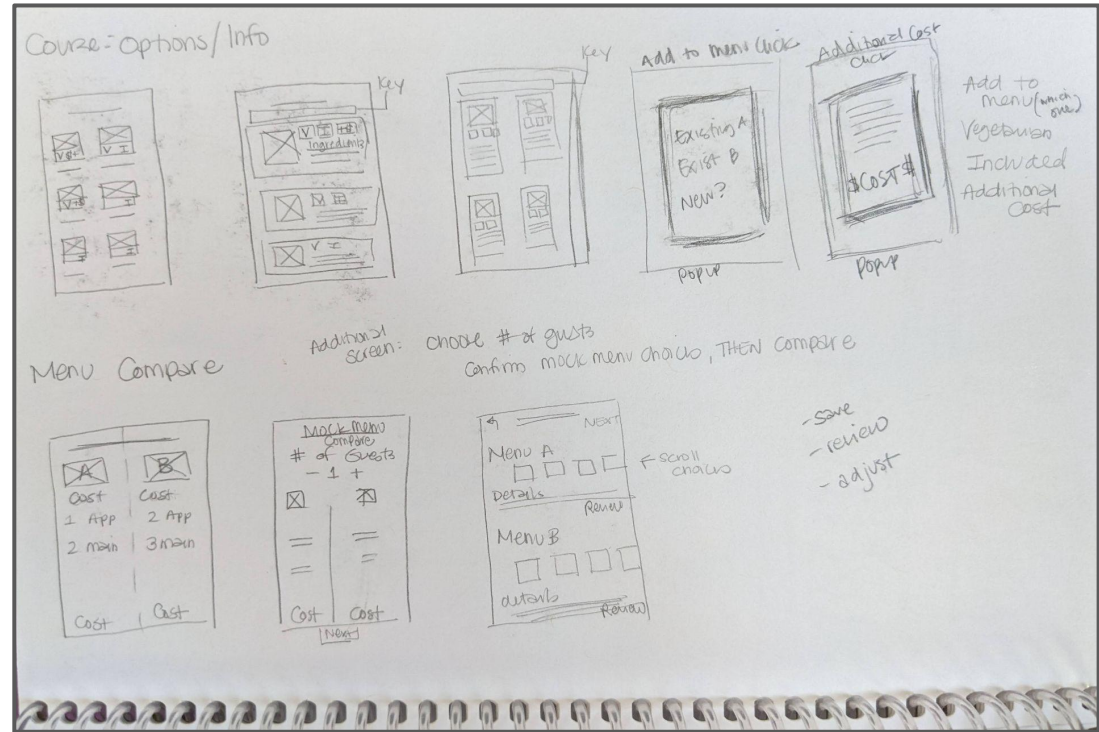 Course: Options/Info
Key
V I +$
Ingredients
V
V I
Key
Add to menu click
Existing A
Exist B
New?
Popup
Additional Cost
Click
$COST$
Popup
Add to
menu (which
one)
Vegetarian
Included
Additional
Cost
Additional
screen: choose # of gusts
Confirm mock menu choices, THEN compare
Menu Compare
A B
Cost Cost
1 App 2 App
2 main 3 main
Cost Cost
Mock Menu
Compare
# of Guests
- 1 +
Cost Cost
Next
NEXT
Menu A
← Scroll
choices
Details
Review
Menu B
details
Review
- save
- review
- adjust